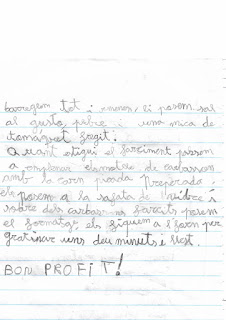 barregem tot i menem, li posem sal
al gusto, pebre i una mica de
tomaquet fregit.
Quant estigui el farciment passem
a omplenar elsmetaic de carbasson
amb la carn picada preparada.
els posem a la safata de vidre i
sobre dels carbas- ns farcits posem
el formatge, els fiquem a l'forn per
gratinar uns deu minuts i llest.
BON PROFIT!